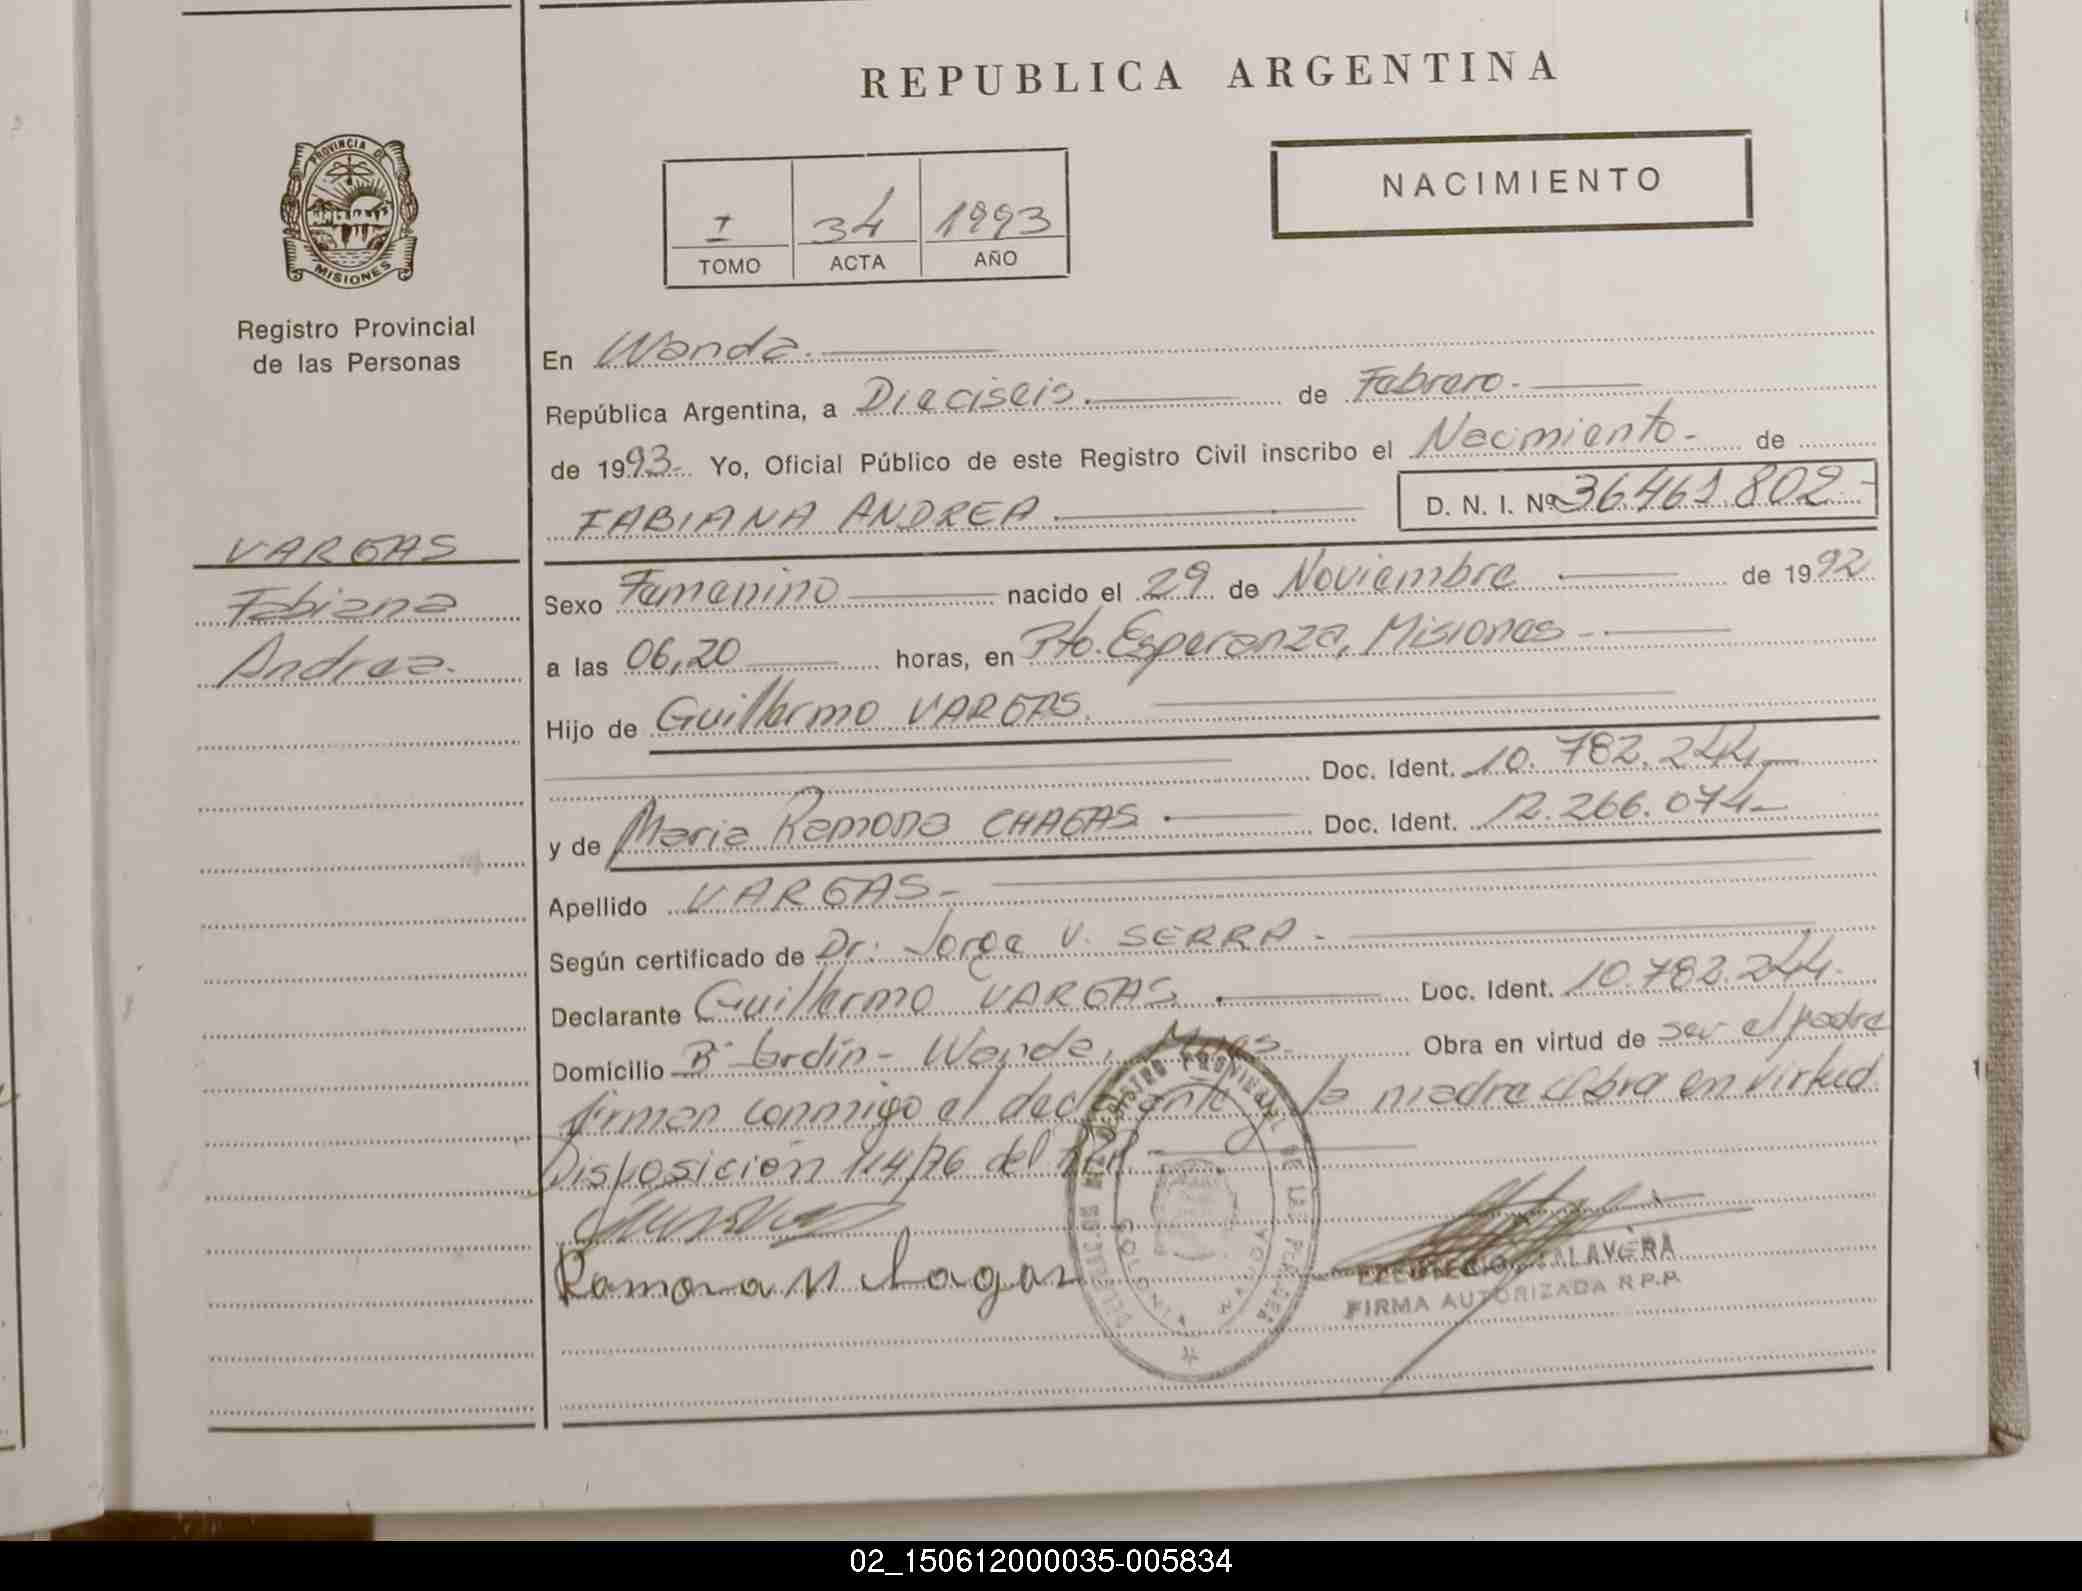 REPUBLICA ARGENTINA
PROVINCIA DE
MISIONES
Registro Provincial
de las Personas
NACIMIENTO
I 34 1993
TOMO ACTA AÑO
En Wanda.
República Argentina, a Dieciseis. de Febrero.-
de 1993.- Yo, Oficial Público de este Registro Civil inscribo el Nacimiento- de
FABIANA ANDREA. D. N. I. Nº 36.461.802-
VARGAS
Fabiana
Andrea.
Sexo Femenino nacido el 29 de Noviembre de 1992
a las 06,20 horas, en Pto. Esperanza, Misiones-
Hijo de Guillermo VARGAS.
Doc. Ident. 10.782.244-
y de Maria Ramona CHAGAS. Doc. Ident. 12.266.074-
Apellido VARGAS-
Según certificado de Dr. Jorge V. SERRA-
Declarante Guillermo VARGAS. Doc. Ident. 10.782.244.
Domicilio Bº Jardín- Wanda, Mnes- Obra en virtud de ser el padre
firman conmigo el declarante y la madre Obra en virtud
Disposición 114/76 del
Ramona M Chagas
REGISTRO PROVINCIAL DE LAS PERSONAS
MISIONES
TALAVERA
FIRMA AUTORIZADA R.P.P.
02_150612000035-005834